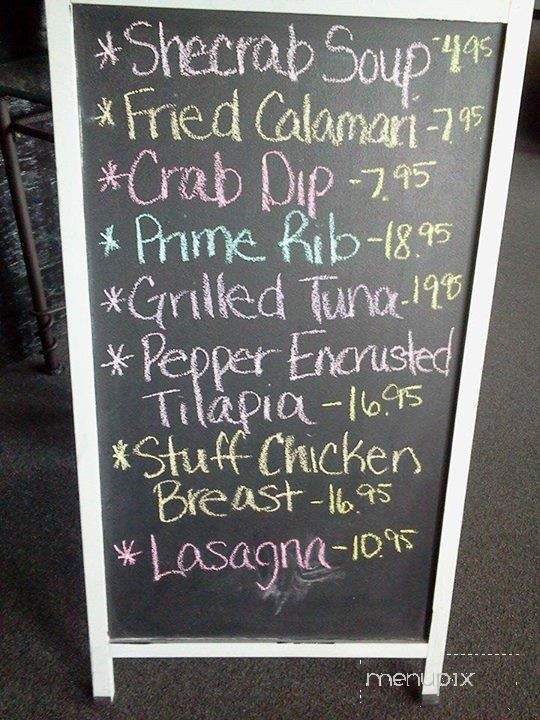 * Shecrab Soup -4.95
* Fried Calamari -7.95
* Crab Dip -7.95
* Prime Rib -18.95
* Grilled Tuna -19.95
* Pepper Encrusted
Tilapia -16.95
* Stuff Chicken
Breast -16.95
* Lasagna -10.95
menupix